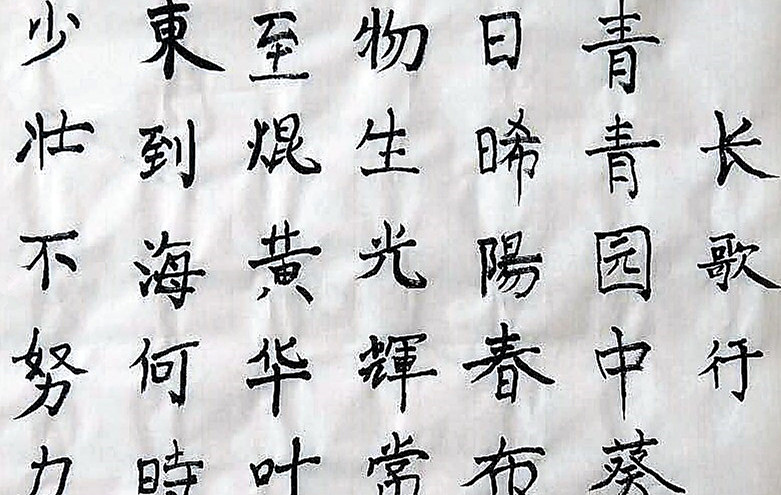 长歌行
青青园中葵
日晞陽春布
物生光輝常
至焜黄华叶
東到海何時
少壮不努力